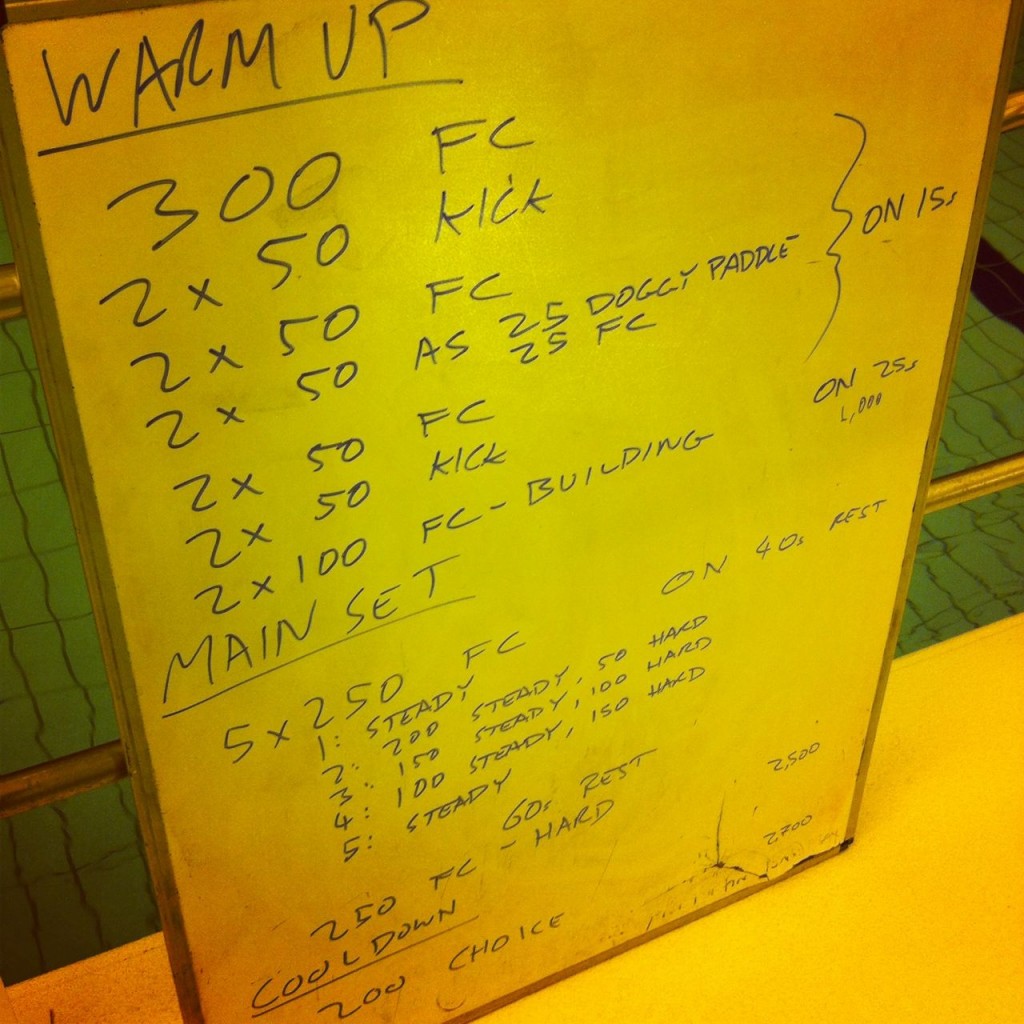 WARM UP
300 FC
2 x 50 KICK
2 x 50 FC
2 x 50 AS 25 DOGGY PADDLE
25 FC
ON 15s
2 x 50 FC
2 x 50 KICK
2 x 100 FC - BUILDING
ON 25s
1,000
MAIN SET
5 x 250 FC ON 40s REST
1: STEADY
2: 200 STEADY, 50 HARD
3: 150 STEADY, 100 HARD
4: 100 STEADY, 150 HARD
5: STEADY
60s REST
250 FC - HARD
2,500
COOL DOWN
200 CHOICE
2700